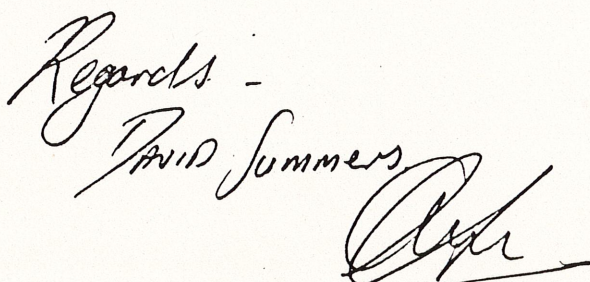 Regards -
DAVID Summers